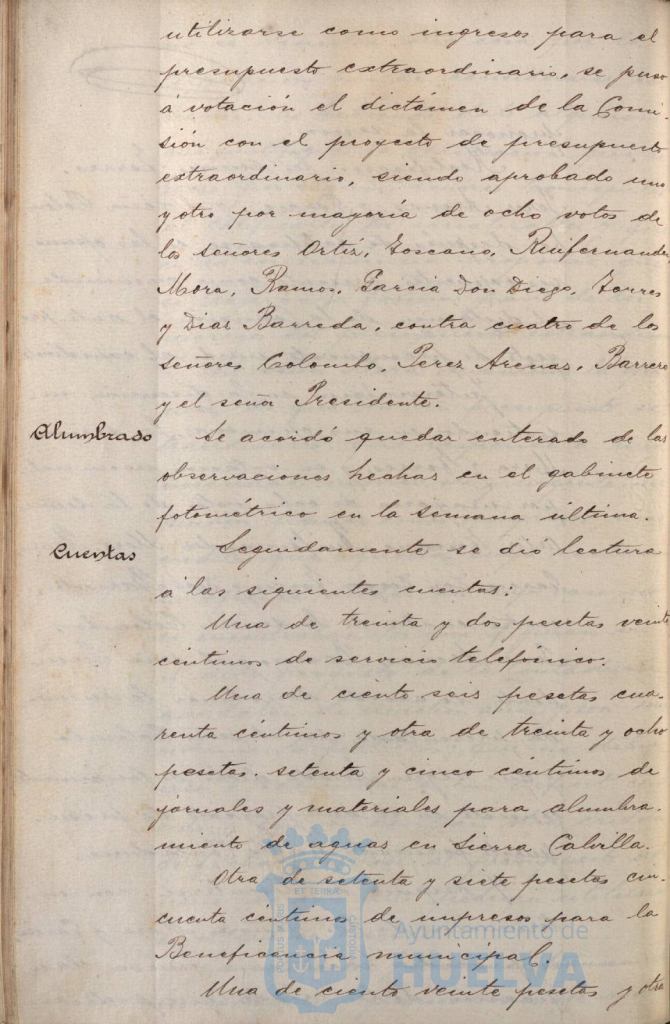 utilizarse como ingresos para el
presupuesto extraordinario, se puso
á votación el dictámen de la Comi-
sión con el proyecto de presupuesto
extraordinario, siendo aprobado uno
y otro por mayoría de ocho votos de
los señores Ortiz, Toscano, Ruifernandez
Mora, Ramos, Garcia Don Diego, Torres
y Diaz Barreda, contra cuatro de los
señores Colombo, Perez Arenas, Barrero
y el señor Presidente.
Alumbrado
Se acordó quedar enterado de las
observaciones hechas en el gabinete
fotométrico en la semana última.
Cuentas
Seguidamente se dió lectura
á las siguientes cuentas:
Una de treinta y dos pesetas veinte
céntimos de servicio telefónico.
Una de ciento seis pesetas cua-
renta céntimos y otra de treinta y ocho
pesetas setenta y cinco céntimos de
jornales y materiales para alumbra-
miento de aguas en Sierra Calvilla.
Otra de setenta y siete pesetas cin-
cuenta céntimos de impresos para la
Beneficencia municipal.
Una de ciento veinte pesetas y otra
Ayuntamiento de
HUELVA